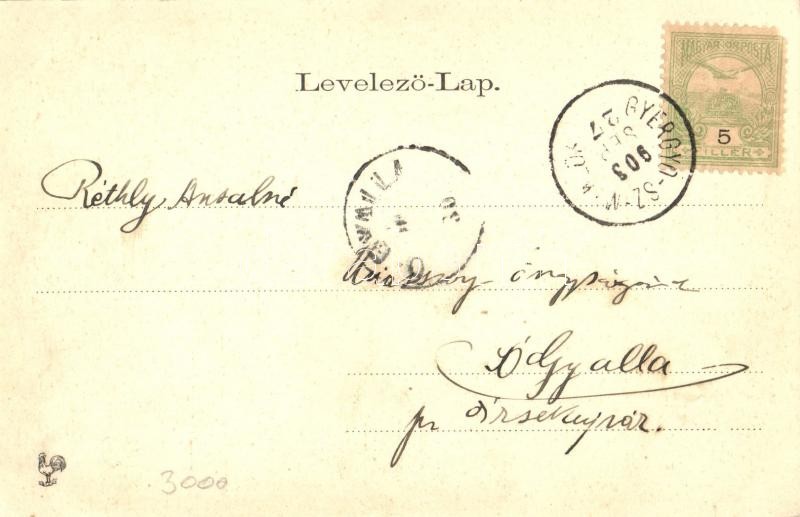 Levelező-Lap.
MAGYAR·KIR·POSTA
5
FILLÉR
GYERGYÓ-SZ-MIKLÓS
903
SEP
27
30
Réthly Antalné
Ó Gyalla
pr Érsekujvár.
3000